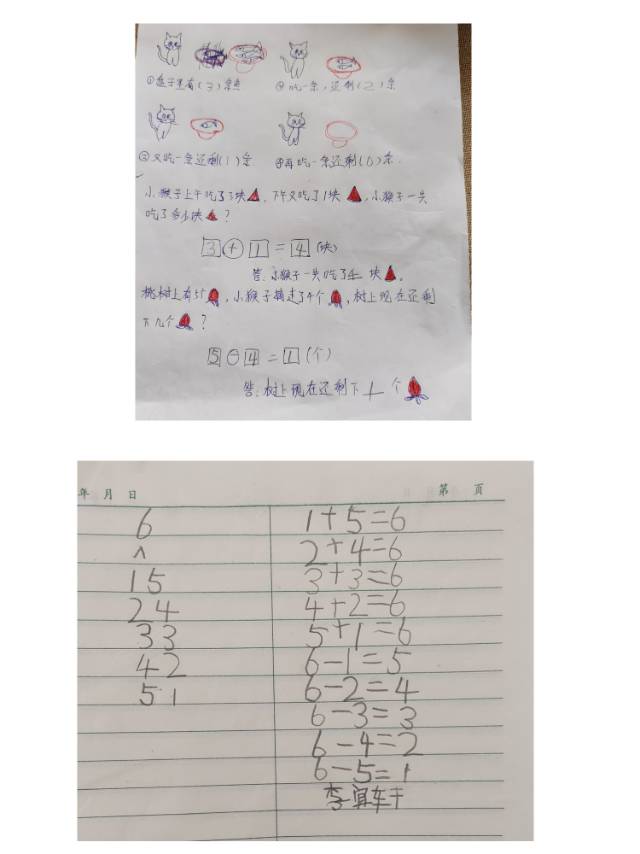 ①盘子里有(3)条鱼 ②吃一条,还剩(2)条
③又吃一条还剩(1)条 ④再吃一条还剩(0)条.
小猴子上午吃了3块,下午又吃了1块,小猴子一共
吃了多少块?
3+1=4(块)
答:小猴子一共吃了4块.
桃树上有5个,小猴子摘走了4个,树上现在还剩
下几个?
5-4=1(个)
答:树上现在还剩下1个
年 月 日 第 页
6 1+5=6
^ 2+4=6
15 3+3=6
24 4+2=6
33 5+1=6
42 6-1=5
51 6-2=4
6-3=3
6-4=2
6-5=1
李